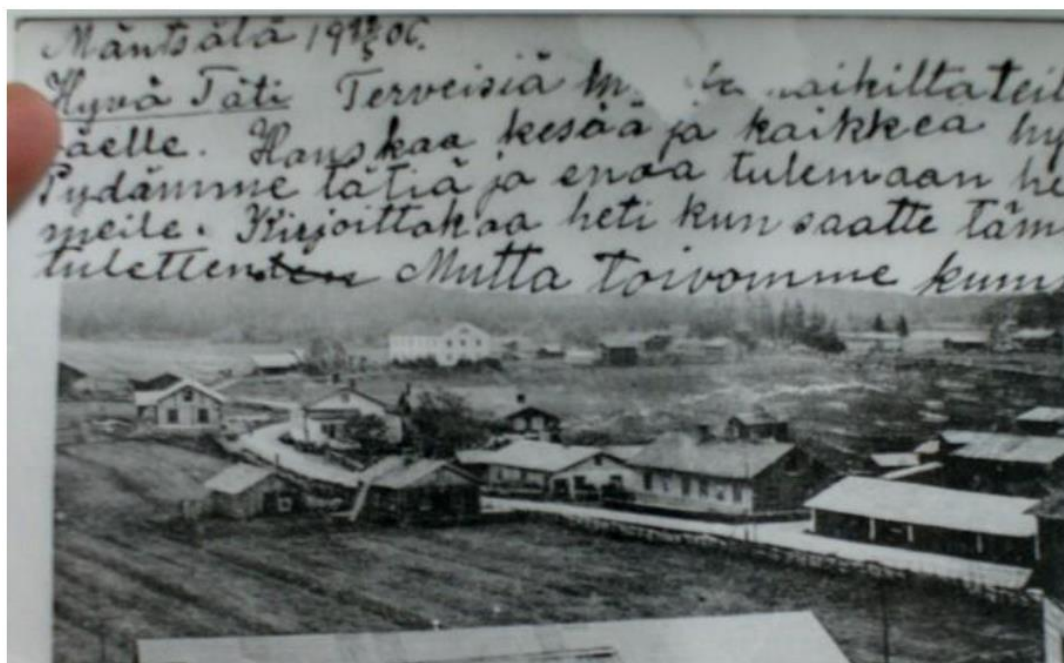 Mäntsälä 19 22/5 06.
Hyvä Täti Terveisiä aikilta teil
äelle. Hauskaa kesää ja kaikkea hy
Pydämme tätiä ja enoa tulemaan he
meile. Kirjoittakaa heti kun saatte täm
tulette Mutta toivomme kum